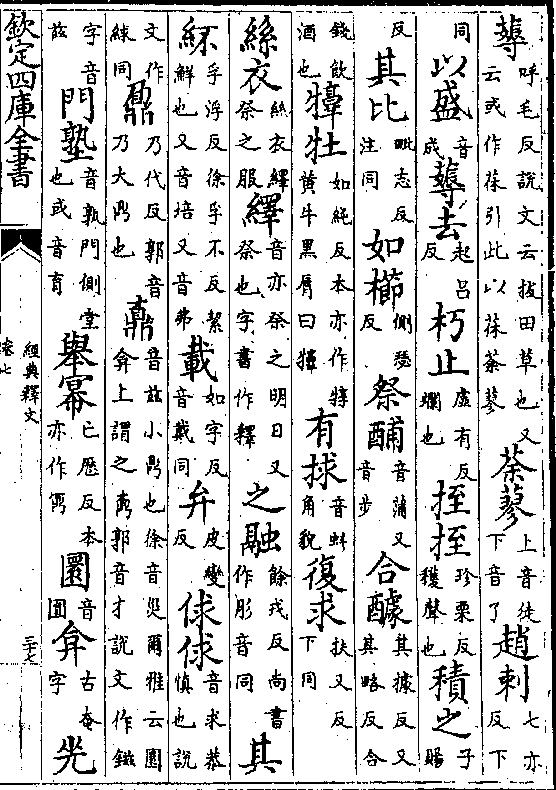 薅呼毛反說文云拔田草也又云或作茠引此以茠荼蓼荼蓼上音徒下音了趙刺七亦反下
同以盛音成薅去起呂反朽止虛有反爛也挃挃珍栗反穫聲也積之子賜
反其比毗志反注同如櫛側瑟反祭酺音蒲又音步合醵其據反又其略反合
錢飲酒也犉牡如純反本亦作犉黄牛黑脣曰犉有捄音虯角貌復求扶又反下同
絲衣絲衣繹祭之服繹音亦祭之明日又祭也字書作釋之融餘戎反尚書作肜音同其
紑孚浮反徐孚不反絜鮮也又音培又音弗載如字反音戴同弁皮變反俅俅音求恭慎也說
文作絿同鼐乃代反郭音乃大鼎也鼒音兹小鼎也徐音災爾雅云圜弇上謂之鼒郭音才說文作鎡
字音兹門塾音孰門側堂也或音育舉冪已歷反本亦作鼏圜音圓弇古奄字光
欽定四庫全書
經典釋文
卷七
三十七